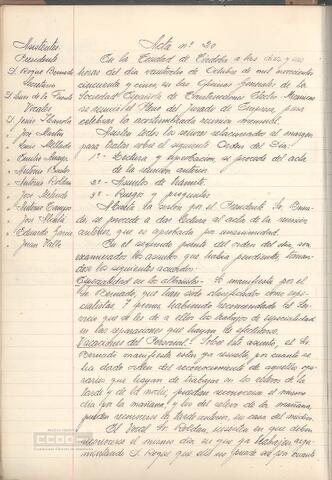 Asistentes
Presidente
D. Roque Bernado
Secretario
D. Luis de la Fuente
Vocales
D. Jesús
" José Martín
" Luis Mellado
" Emilio
" Antonio
" Antonio Roldán
" José
" Antonio Campos
" José Alcalá
" Eduardo García
" Juan Valle
Acta nº 20
En la Ciudad de Córdoba a las diez y seis
horas del día veintiocho de Octubre de mil novecientos
cincuenta y cinco, en las Oficinas Generales de la
Sociedad Española de Construcciones Electro-Mecánicas
se reunió el Pleno del Jurado de Empresa, para
celebrar la acostumbrada reunión mensual.
Asisten todos los señores relacionados al margen
para tratar sobre el siguiente Orden del Día:
1º - Lectura y aprobación, si procede del acta
de la reunión anterior
2º - Asuntos de trámite
3º - Ruegos y preguntas
Abierta la sesión por el Presidente Sr. Berna-
do, se procede a dar lectura al acta de la reunión
anterior, que es aprobada por unanimidad.
En el segundo punto del orden del día, son
examinados los asuntos que había pendientes, toman-
do los siguientes acuerdos:
Especialidad en los albañiles - Se manifiesta por el
Sr. Bernado, que han sido clasificados como espe-
cialistas 1º
que se les dé a ellos los trabajos de especialidad
en las reparaciones que hayan de efectuarse.
Vacaciones del Personal: Sobre este asunto, el Sr.
Bernado manifiesta estar ya resuelto, por cuanto se
ha dado orden del reconocimiento de aquellos ope-
rarios que hayan de trabajar en los relevos de la
tarde y de la noche, puedan reconocerse el mismo
día por la mañana, y los del relevo de la mañana,
pueden reconocerse la tarde anterior, en casa del médico.
El Vocal Sr. Roldán, insiste en que deben
reconocerse el mismo día en que ya trabajen argu-
mentando D. Roque que ello no puede ser por cuanto
CCOO